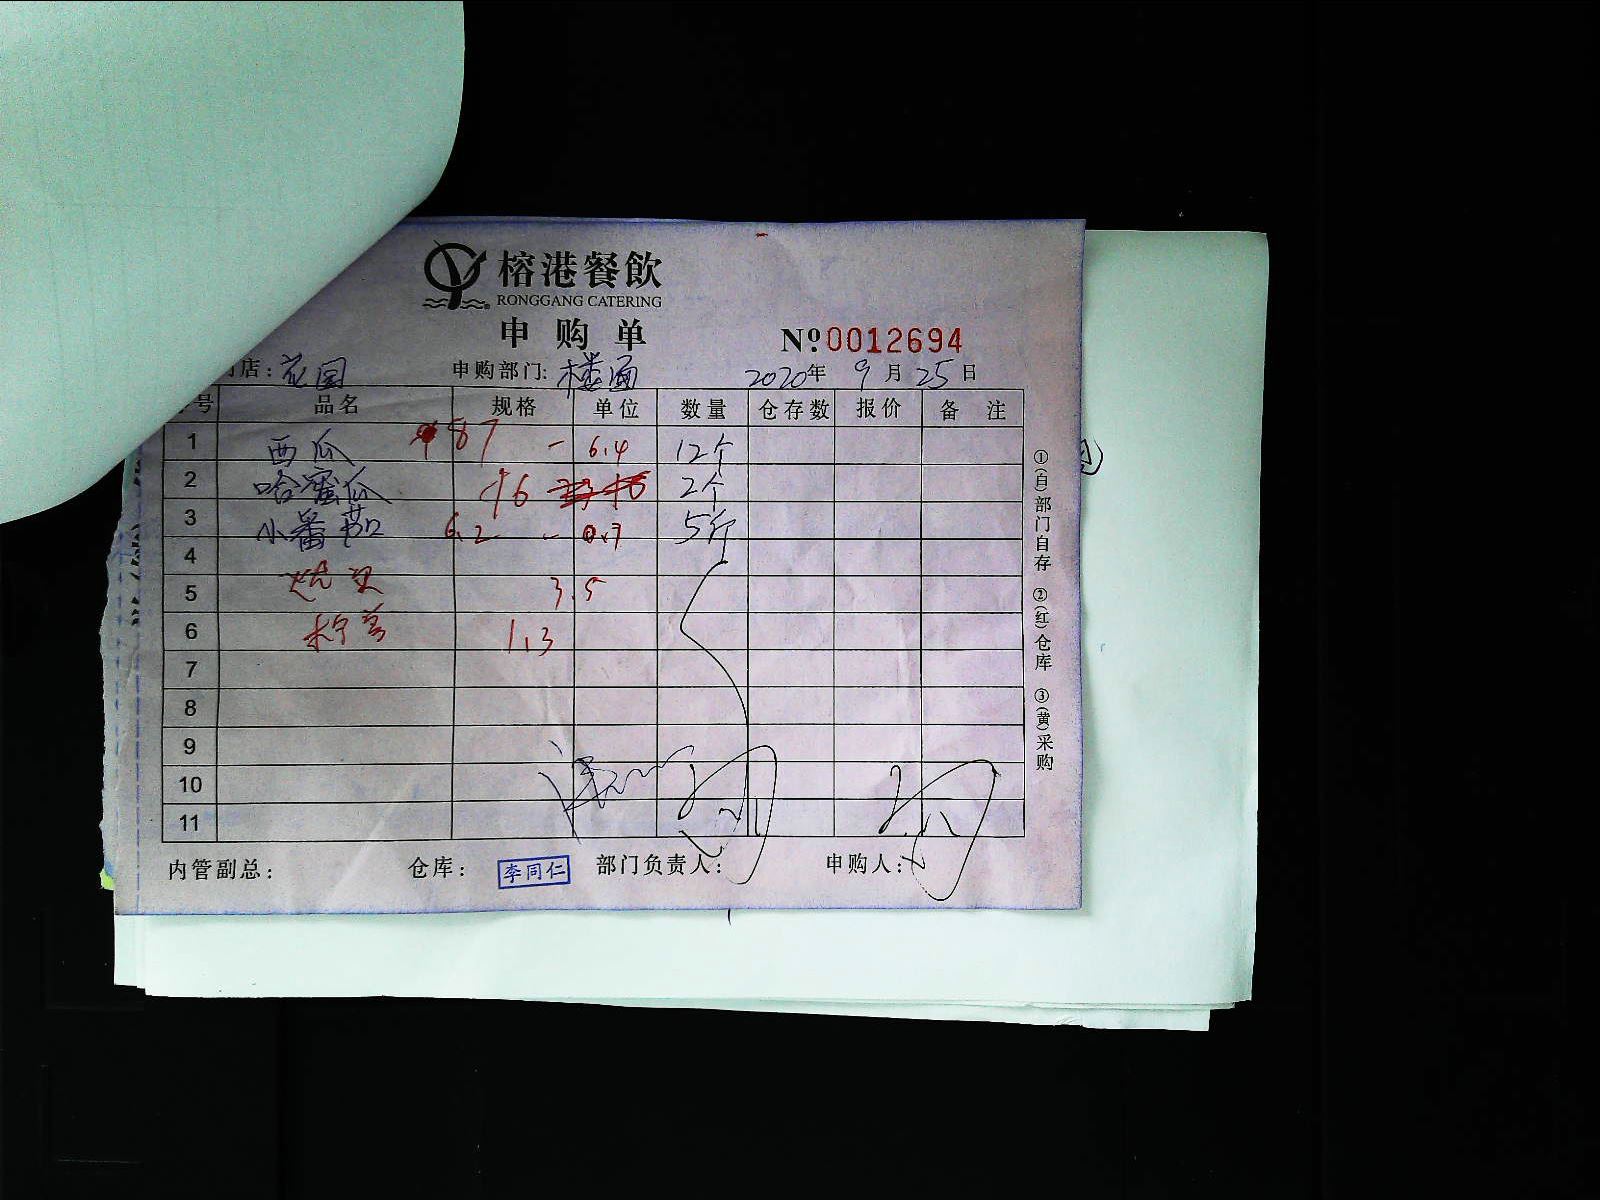 榕港餐飲
RONGGANG CATERING
申购单
№ 0012694
店：花园 申购部门：楼面 2020年 9月 25日
号 品名 规格 单位 数量 仓存数 报价 备注
1 西瓜 87 - 6.4 12个
2 哈蜜瓜 96 2个
3 小番茄 6.2 - 0.7 5斤
4
5 3.5
6 柠 1.3
7
8
9
10
11
内管副总： 仓库：李同仁 部门负责人： 申购人：
①(白)部门自存 ②(红)仓库 ③(黄)采购